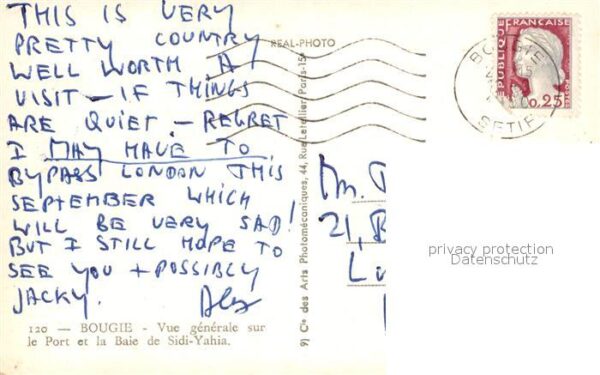 THIS IS VERY
PRETTY COUNTRY
WELL WORTH A
VISIT — IF THINGS
ARE QUIET — REGRET
I MAY HAVE TO
BYPASS LONDON THIS
SEPTEMBER WHICH
WILL BE VERY SAD!
BUT I STILL HOPE TO
SEE YOU + POSSIBLY
JACKY.
120 — BOUGIE - Vue générale sur
le Port et la Baie de Sidi-Yahia.
REAL-PHOTO
9) Cie des Arts Photomécaniques, 44, Rue Letellier, Paris-15e
REPUBLIQUE FRANÇAISE
0.25
BOUGIE
SETIF
21,
privacy protection
Datenschutz